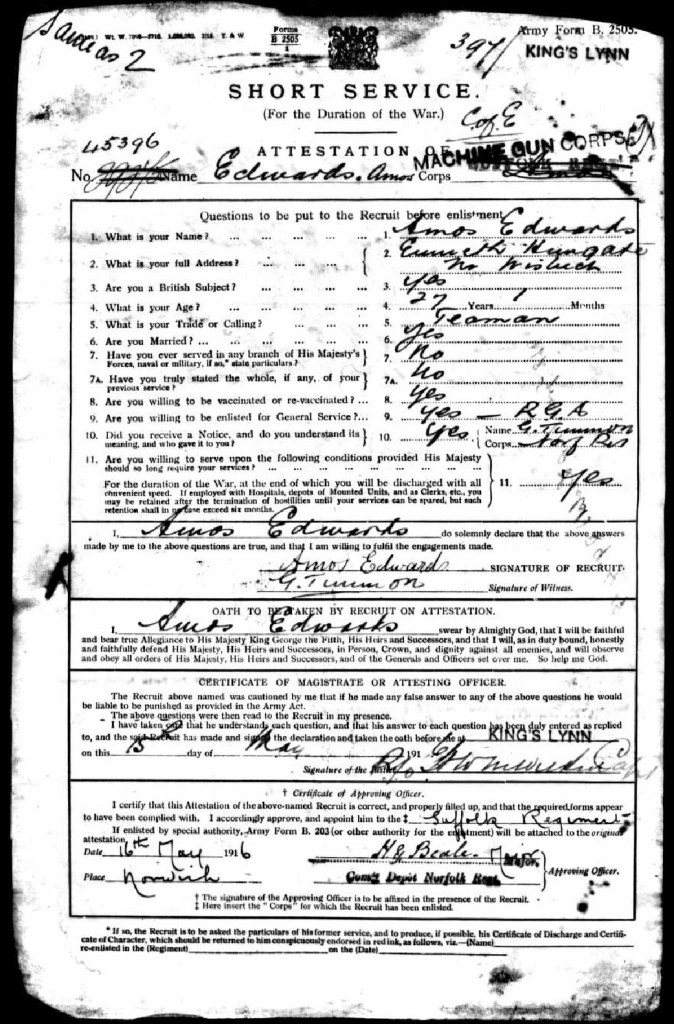 Same as 2
Forms
B 2505
1
Army Form B. 2505.
397/
KING'S LYNN
SHORT SERVICE.
(For the Duration of the War.)
C of E
45396
ATTESTATION OF
MACHINE GUN CORPS
No. Name Edwards. Amos Corps
Questions to be put to the Recruit before enlistment.
1. What is your Name? ... ... ... ... 1. Amos Edwards
2. What is your full Address? ... ... ... 2. Hungate
Wisbech
3. Are you a British Subject? ... ... ... 3. Yes
4. What is your Age? ... ... ... ... 4. 27 Years 1 Months
5. What is your Trade or Calling? ... ... 5. Teaman
6. Are you Married? ... ... ... ... 6. Yes
7. Have you ever served in any branch of His Majesty's
Forces, naval or military, if so,* state particulars? 7. No
7A. Have you truly stated the whole, if any, of your
previous service? 7A. No
8. Are you willing to be vaccinated or re-vaccinated? ... 8. Yes
9. Are you willing to be enlisted for General Service?... 9. Yes — R.G.A
10. Did you receive a Notice, and do you understand its
meaning, and who gave it to you? 10. Yes Name G. Timmon
Corps Norf Rs
11. Are you willing to serve upon the following conditions provided His Majesty
should so long require your services? ... ... ... ... ...
For the duration of the War, at the end of which you will be discharged with all
convenient speed. If employed with Hospitals, depots of Mounted Units, and as Clerks, etc., you
may be retained after the termination of hostilities until your services can be spared, but such
retention shall in no case exceed six months.
11. Yes
I, Amos Edwards do solemnly declare that the above answers
made by me to the above questions are true, and that I am willing to fulfil the engagements made.
Amos Edwards SIGNATURE OF RECRUIT.
G. Timmon Signature of Witness.
OATH TO BE TAKEN BY RECRUIT ON ATTESTATION.
I, Amos Edwards swear by Almighty God, that I will be faithful
and bear true Allegiance to His Majesty King George the Fifth, His Heirs and Successors, and that I will, as in duty bound, honestly
and faithfully defend His Majesty, His Heirs and Successors, in Person, Crown, and dignity against all enemies, and will observe
and obey all orders of His Majesty, His Heirs and Successors, and of the Generals and Officers set over me. So help me God.
CERTIFICATE OF MAGISTRATE OR ATTESTING OFFICER.
The Recruit above named was cautioned by me that if he made any false answer to any of the above questions he would
be liable to be punished as provided in the Army Act.
The above questions were then read to the Recruit in my presence.
I have taken care that he understands each question, and that his answer to each question has been duly entered as replied
to, and the said Recruit has made and signed the declaration and taken the oath before me at KING'S LYNN
on this 15 day of May 191
Signature of the Justice Capt
† Certificate of Approving Officer.
I certify that this Attestation of the above-named Recruit is correct, and properly filled up, and that the required forms appear
to have been complied with. I accordingly approve, and appoint him to the ‡ Suffolk Regiment
If enlisted by special authority, Army Form B. 203 (or other authority for the enlistment) will be attached to the original
attestation.
Date 16th May 1916
H G Beale Major. Approving Officer.
Place Norwich
Comg Depôt Norfolk Regt
† The signature of the Approving Officer is to be affixed in the presence of the Recruit.
‡ Here insert the "Corps" for which the Recruit has been enlisted.
* If so, the Recruit is to be asked the particulars of his former service, and to produce, if possible, his Certificate of Discharge and Certifi-
cate of Character, which should be returned to him conspicuously endorsed in red ink, as follows, viz.—(Name)
re-enlisted in the (Regiment) on the (Date)